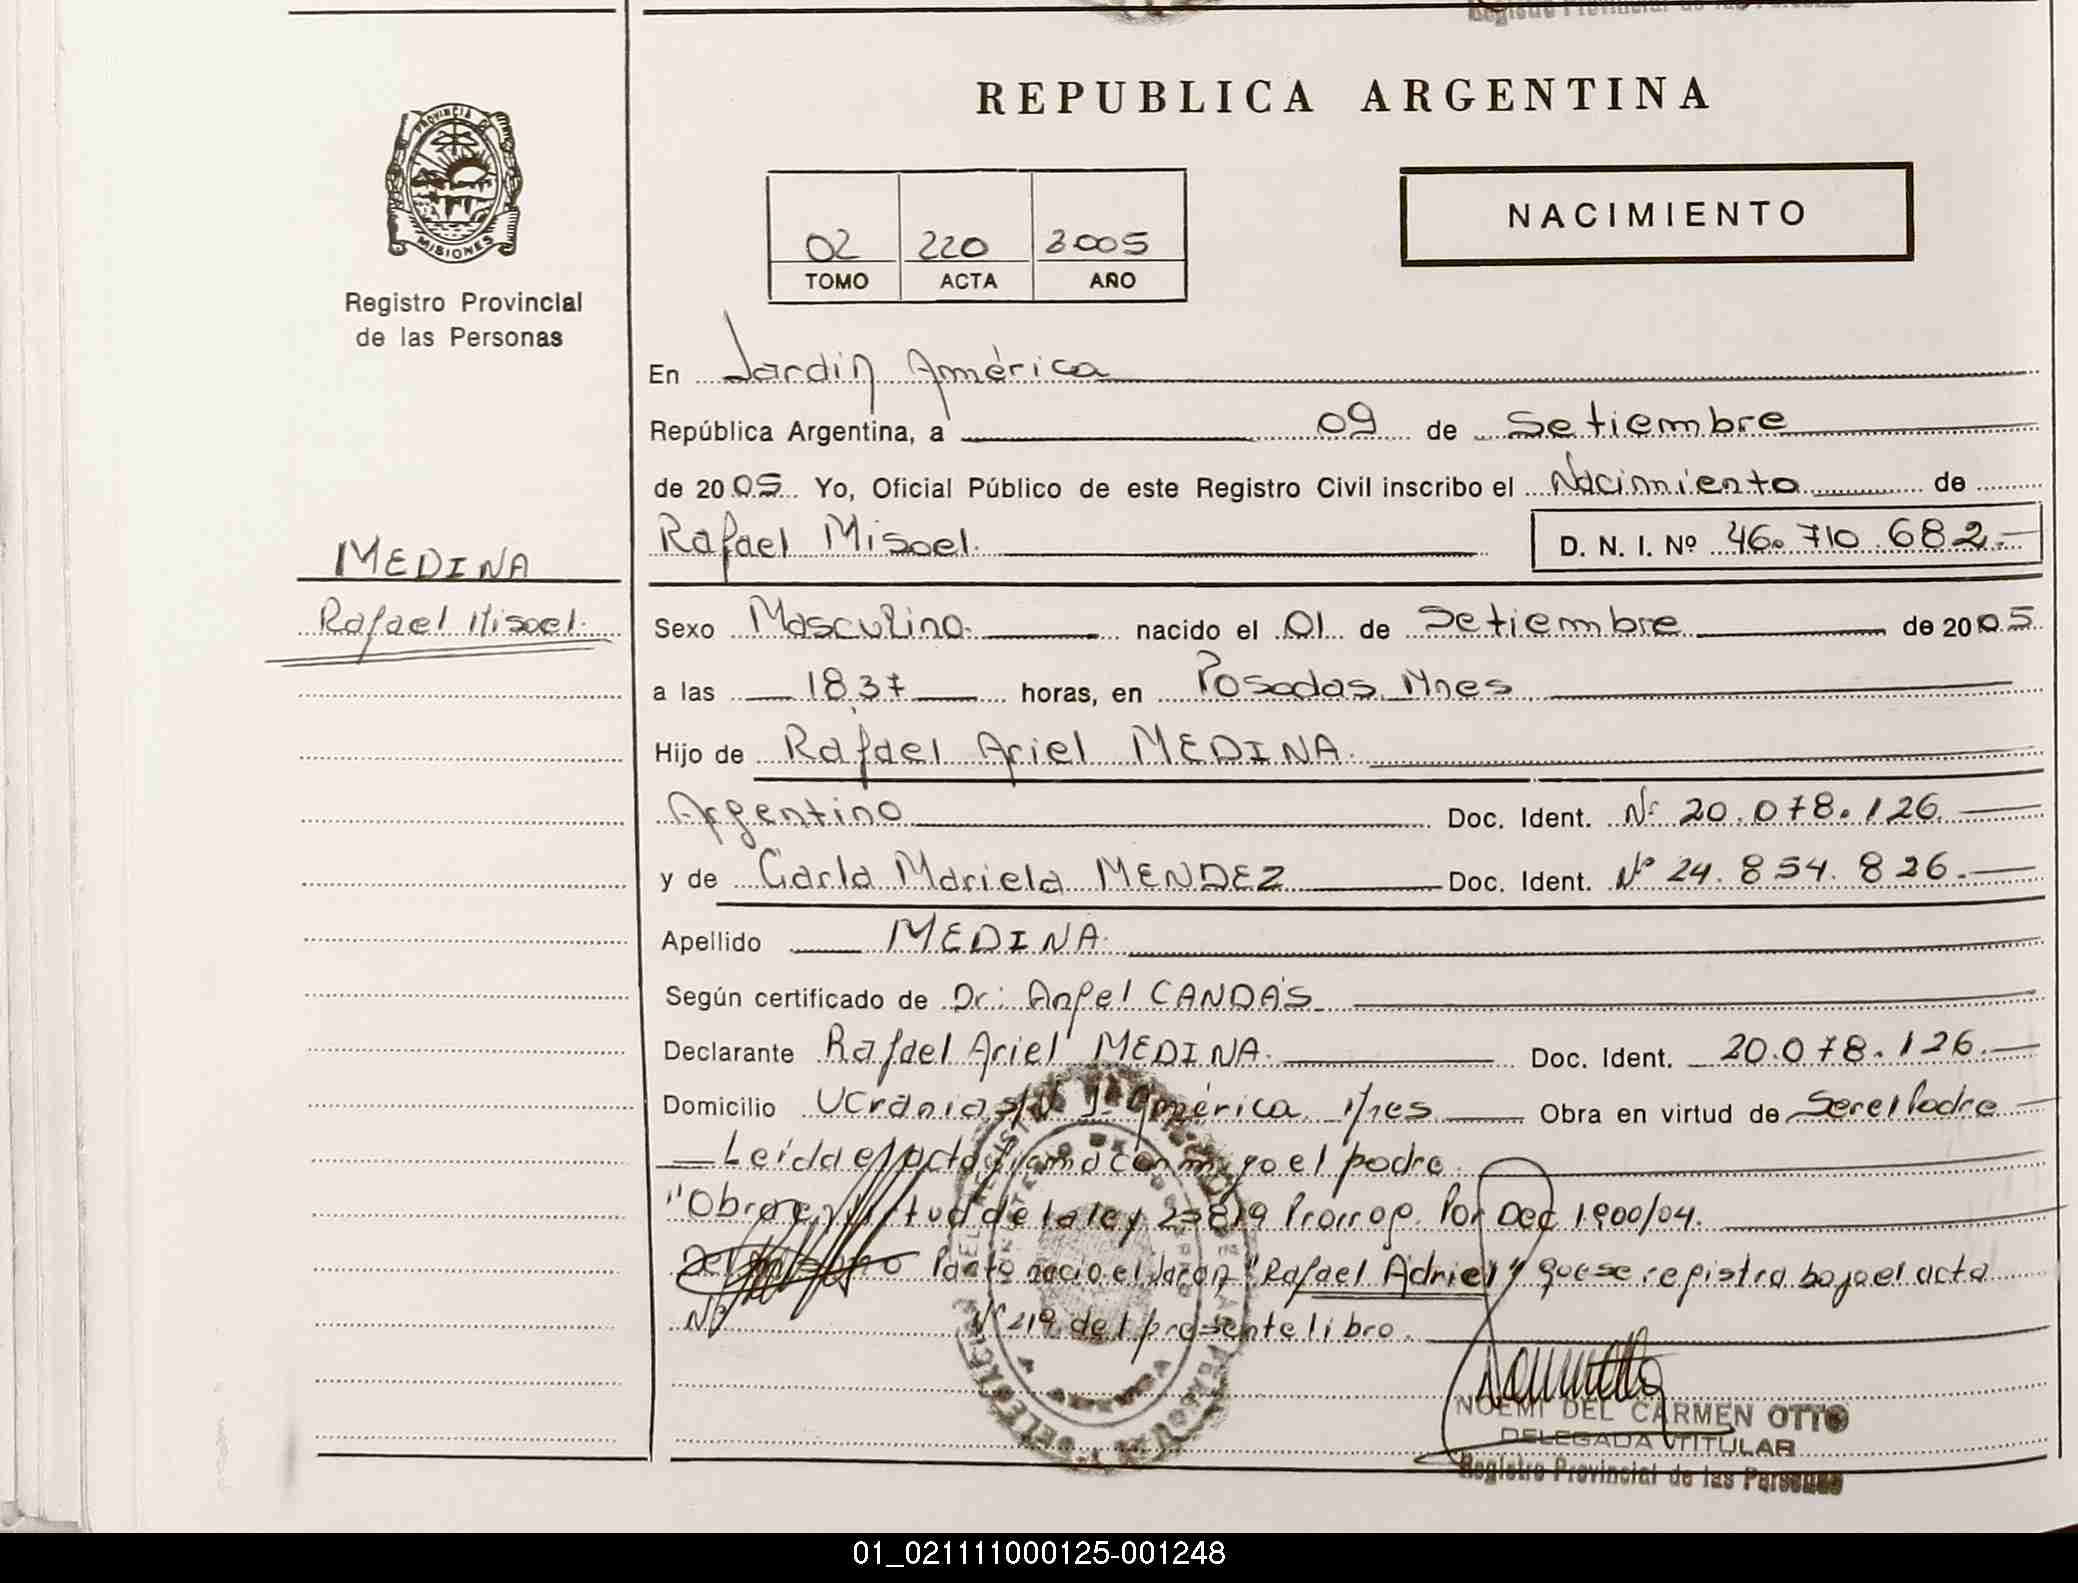 REPUBLICA ARGENTINA
PROVINCIA DE
MISIONES
Registro Provincial
de las Personas
02 220 2005
TOMO ACTA AÑO
NACIMIENTO
En Jardin América
República Argentina, a 09 de Setiembre
de 2005 Yo, Oficial Público de este Registro Civil inscribo el Nacimiento de
Rafael Misael. D. N. I. Nº 46.710.682.-
MEDINA
Rafael Misael.
Sexo Masculino. nacido el 01 de Setiembre de 2005
a las 18,37 horas, en Posadas, Mnes
Hijo de Rafael Ariel MEDINA.
Argentino Doc. Ident. Nº 20.078.126.
y de Carla Mariela MENDEZ Doc. Ident. Nº 24.854.826.
Apellido MEDINA.
Según certificado de Dr: Angel CANDAS
Declarante Rafael Ariel MEDINA. Doc. Ident. 20.078.126.
Domicilio Ucrania s/Nº J. América, Mnes Obra en virtud de Ser el Padre
Leída el acta firma conmigo el padre.
"Obra en virtud de la ley 25819 Prorrog. Por Dec 1900/04.
Del mismo Parto nacio el Varon "Rafael Adriel" que se registra bajo el acta
Nº Nº 219 del presente libro.
NOEMI DEL CARMEN OTTO
DELEGADA TITULAR
Registro Provincial de las Personas
01_021111000125-001248